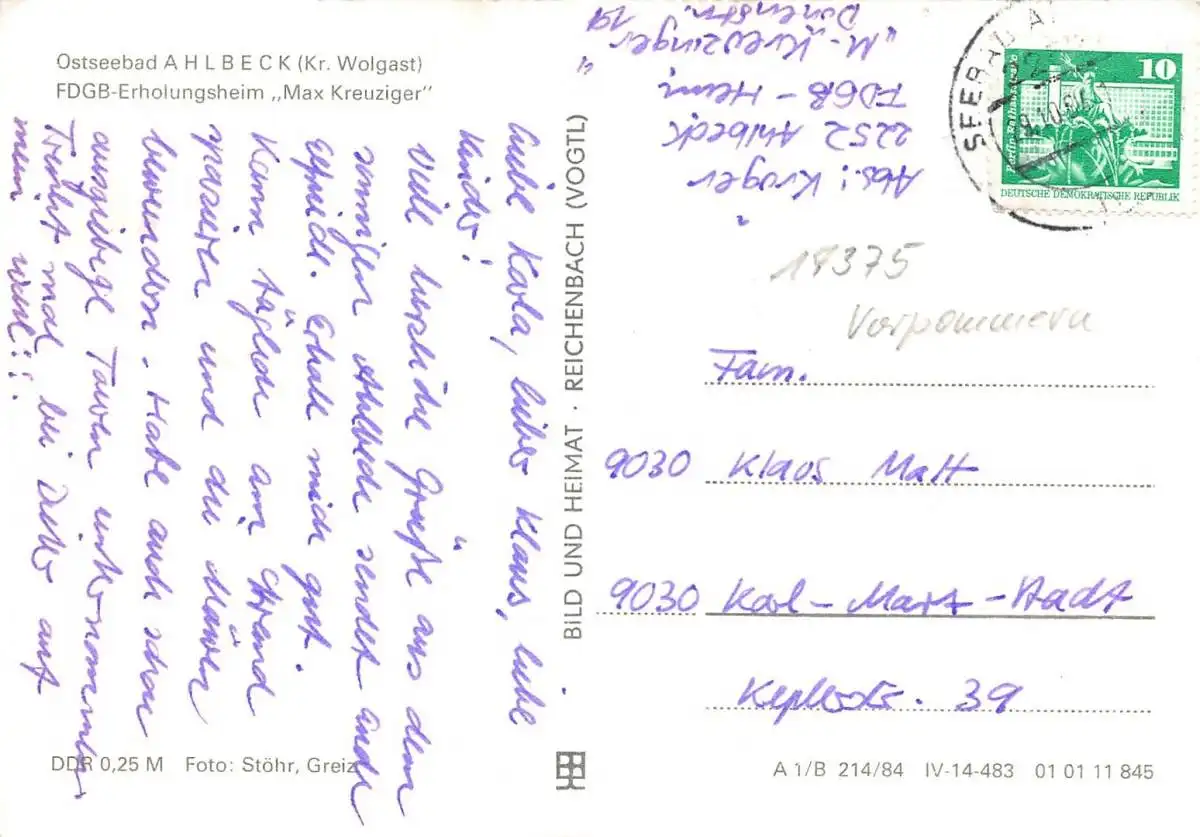 Ostseebad AHLBECK (Kr. Wolgast)
FDGB-Erholungsheim „Max Kreuziger"
Liebe Karla, lieber Klaus, liebe
Kinder!
Viele herzliche Grüße aus dem
sonnigen Ahlbeck sendet euch
Erhole mich gut.
Kann täglich am Strand
spazieren und die Möwen
bewundern. Habe auch schon
ausgiebige Touren unternommen.
mal bei auf
mein
DDR 0,25 M Foto: Stöhr, Greiz
BILD UND HEIMAT · REICHENBACH (VOGTL)
Abs.: Kröger
2252 Ahlbeck
FDGB-Heim
„M. Kreuziger"
Dünenstr.
19
SEEBAD A
10
DEUTSCHE DEMOKRATISCHE REPUBLIK
17375
Vorpommern
Fam.
9030 Klaus Matt
9030 Karl-Marx-Stadt
Keplerstr. 39
A 1/B 214/84 IV-14-483 01 01 11 845